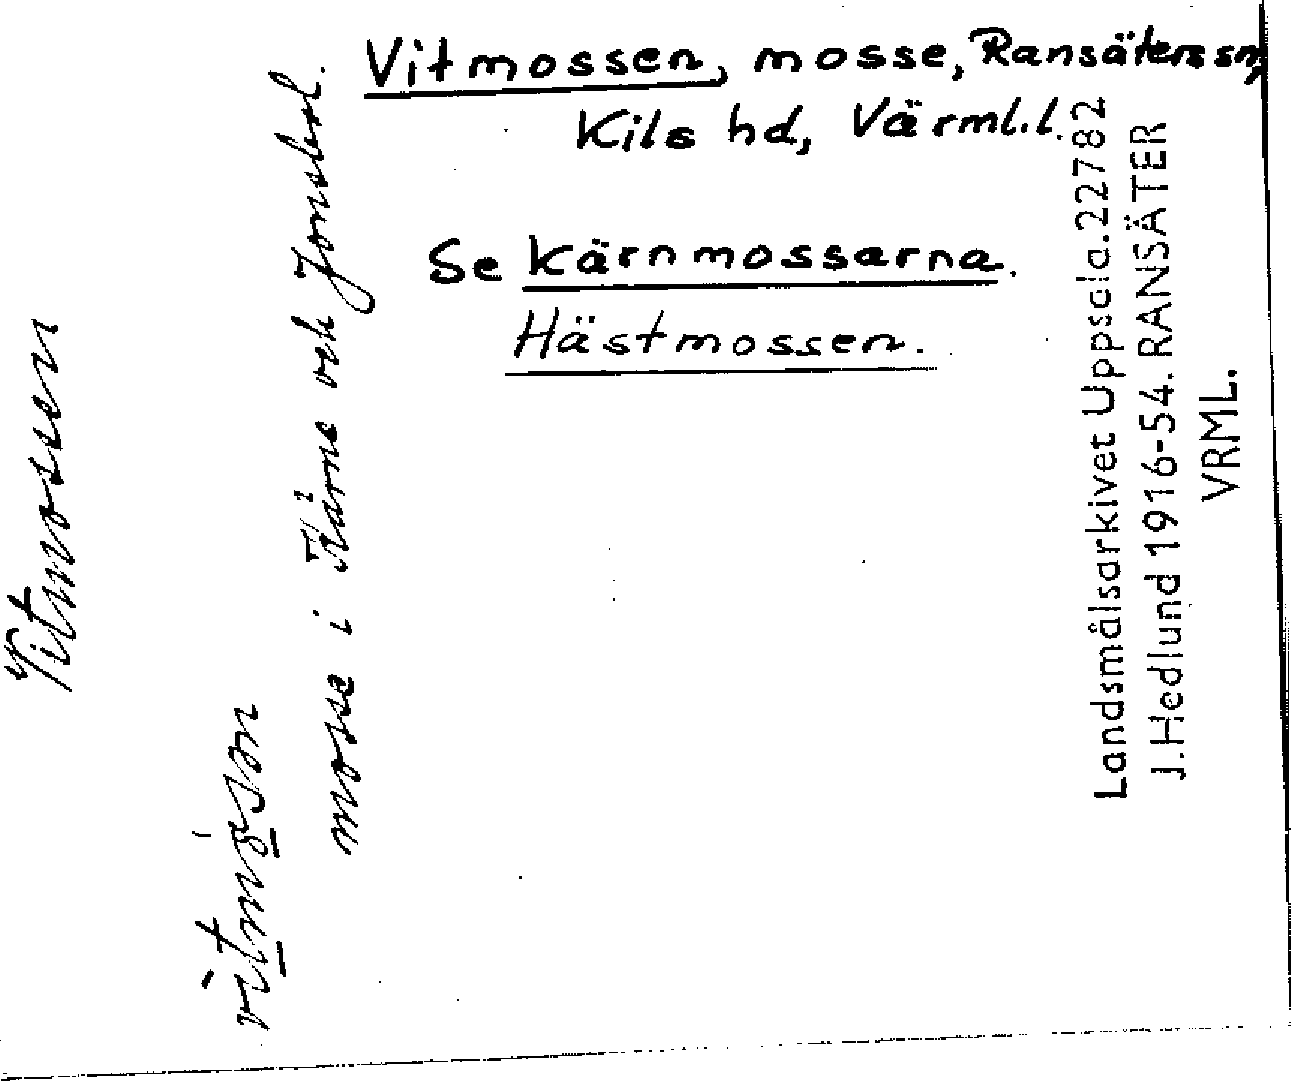 Vitmossen, mosse, Ransäters sn,
Kils hd, Värml.l.
Se Kärnmossarna.
Hästmossen.
Vitmossen
mosse i Kärne och Jonsbol.
Landsmålsarkivet Uppsala.22782
J.Hedlund 1916-54. RANSÄTER
VRML.